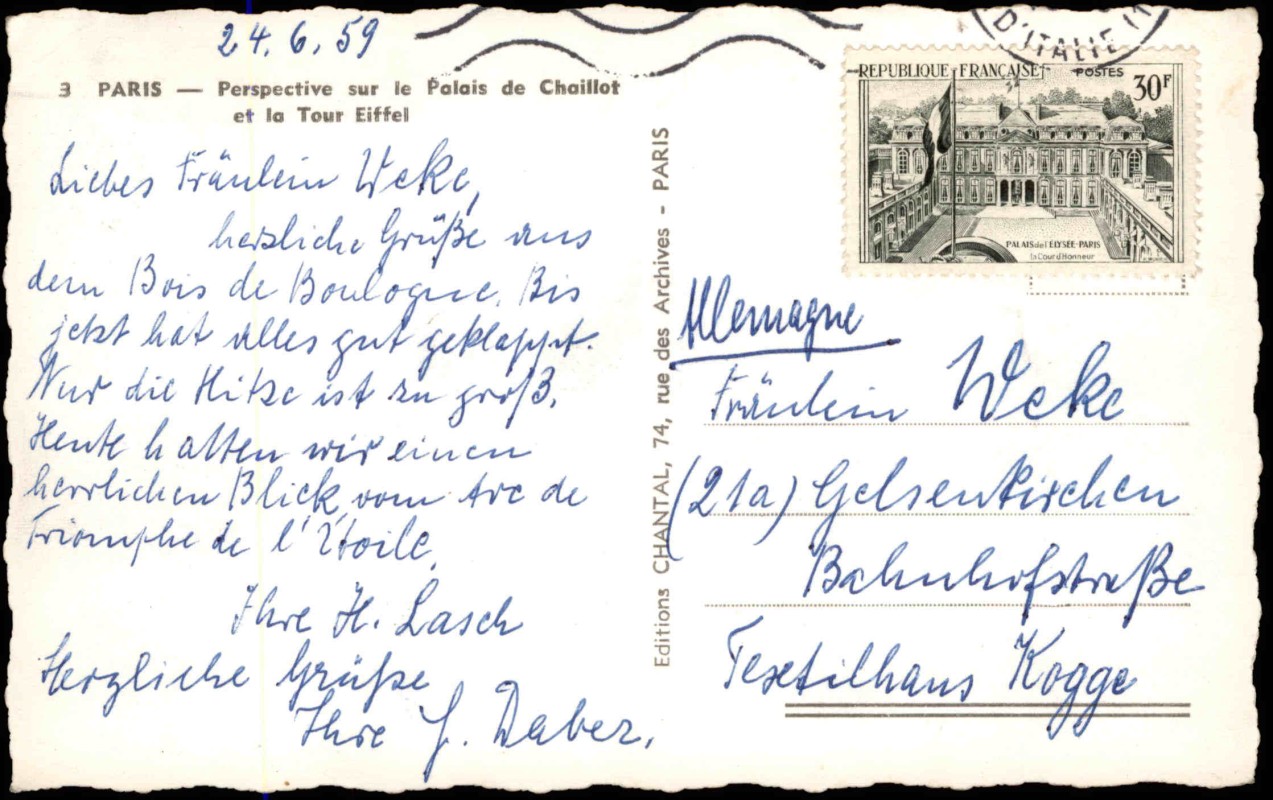 24.6.59
3 PARIS — Perspective sur le Palais de Chaillot
et la Tour Eiffel
Liebes Fräulein Weke,
herzliche Grüße aus
dem Bois de Boulogne. Bis
jetzt hat alles gut geklappt.
Nur die Hitze ist zu groß.
Heute hatten wir einen
herrlichen Blick vom Arc de
Triomphe de l'Étoile.
Ihre H. Lasch
Herzliche Grüße
Ihre J. Daber.
Editions CHANTAL, 74, rue des Archives - PARIS
D'ITALIE (1
REPUBLIQUE FRANÇAISE POSTES 30F
PALAIS de l'ELYSÉE-PARIS
la Cour d'Honneur
Allemagne
Fräulein Weke
(21a) Gelsenkirchen
Bahnhofstraße
Textilhaus Kogge